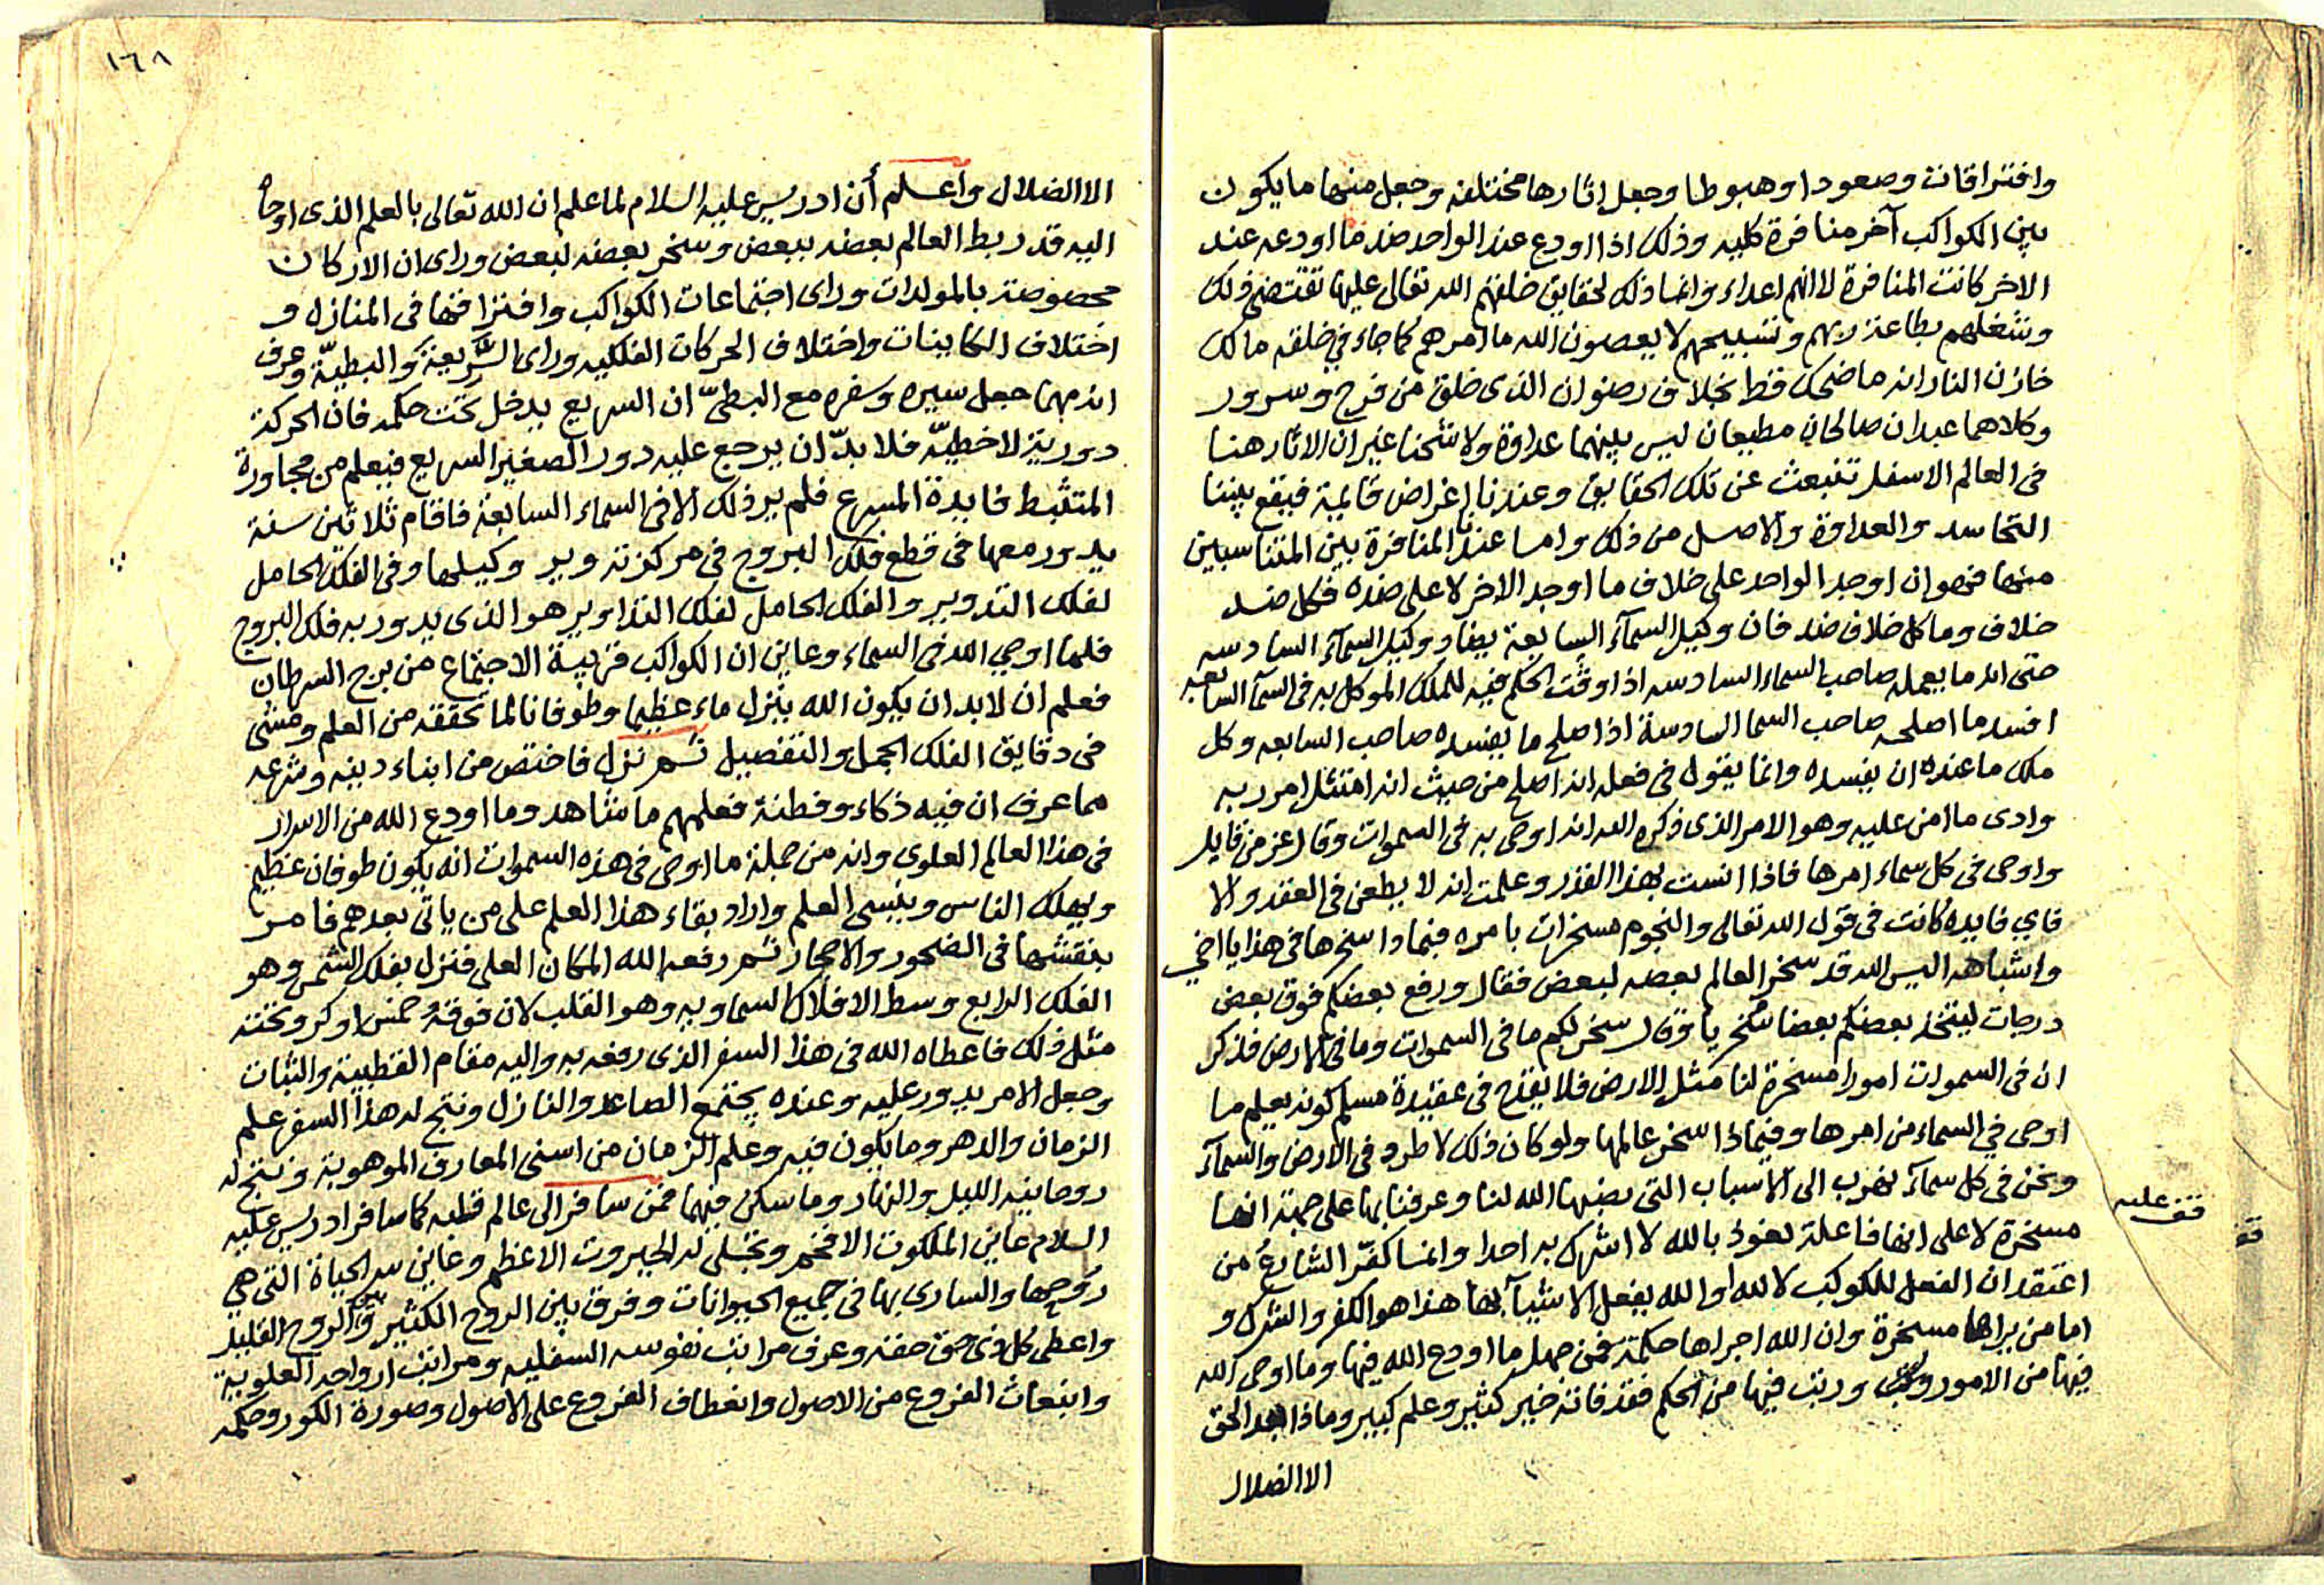 وافتراقات وصعودا وهبوطا وجعل اثارها مختلفه وجعل منها ما يكون
بين الكواكب آخر منافرة كليه وذلك اذا اودع عند الواحد ضد ما اودعه عند
الاخر كانت المنافرة لا انهم اعداء وانما ذلك لحقايق خلقهم الله تعالى عليها تقتضي ذلك
وشغلهم بطاعة ربهم وتسبيحهم لا يعصون الله ما امرهم كما جاء في خلقه مالك
خازن النار انه ما ضحك قط بخلاف رضوان الذى خلق من فرح وسرور
وكلاهما عبدان صالحان مطيعان ليس بينهما عداوة ولا شحنا غير ان الاثار هنا
فى العالم الاسفل تنبعث عن تلك الحقايق وعندنا اغراض قايمة فيقع بيننا
التحاسد والعداوة والاصل من ذلك واما عند المنافرة بين المتناسبين
منها فهو ان اوجد الواحد على خلاف ما اوجد الاخر لا على ضده فكل ضد
خلاف وما كل خلاف ضد فان وكيل السمآء السابعة يضاد وكيل السمآء السادسه
حتى انه ما يعمله صاحب السماء السادسه اذا وقت الحكم فيه للملك الموكل به فى السمآ السابعه
افسد ما اصلحه صاحب السما السادسة اذا صلح ما يفسده صاحب السابعه وكل
ملك ما عنده ان يفسده وانما يقول فى فعله انه اصلح من حيث انه امتثل امر ربه
وادى ما امن عليه وهو الامر الذى ذكره الله انه اوحى به فى السموات وقال عز من قايل
واوحى فى كل سماء امرها فاذا انست بهذا القدر وعلمت انه لا يطعن فى العقد والا
فاي فايده كانت فى قول الله تعالى والنجوم مسخرات بامره فبماذا سخرها فى هذا يا اخى
واشباهه اليس الله قد سخر العالم بعضه لبعض فقال ورفع بعضكم فوق بعض
درجات ليتخذ بعضكم بعضا سخريا وقال سخر لكم ما فى السموات وما فى الارض فذكر
ان فى السموات امورا مسخرة لنا مثل الارض فلا يقدح فى عقيدة مسلم كونه يعلم ما
اوحى في السماء من امرها وفيماذا سخر عالمها ولو كان ذلك لاطرد فى الارض والسمآء
ونحن فى كل سمآء نهرب الى الاسباب التى نصبها الله لنا وعرفنا بها على جهة انها
مسخرة لا على انها فاعلة نعوذ بالله لا اشرك به احدا وانما كفّر الشارعُ من
اعتقد ان الفعل للكوكب لا لله او الله يفعل الاشيآء بها هذا هو الكفر والشرك و
اما من يراها مسخرة وان الله اجراها حكمة فمن جهل ما اودع الله فيها وما اوحى الله
فيها من الامور ورتب فيها من الحكم فقد فاته خير كثير وعلم كبير وماذا بعد الحق
الا الضلال
قف عليه
١٦٨
الا الضلال واعلم أن ادريس عليه السلام لما علم ان الله تعالى بالعلم الذى اوحاه
اليه قد ربط العالم بعضه ببعض وسخر بعضه لبعض وراى ان الاركان
مخصوصة بالمولدات وراى اجتماعات الكواكب وافتراقها فى المنازل و
اختلاف الكاينات واختلاف الحركات الفلكيه وراى السَّريعة والبطيّة وعرف
انه مهما جعل سيره وسفره مع البطىّ ان السريع يدخل تحت حكمه فان الحركة
دورية لا خطيّة فلا بدّ ان يرجع عليه دور الصغير السريع فيعلم من مجاورة
المتثبط فايدة المسرع فلم ير ذلك الا فى السماء السابعة فاقام ثلاثين سنة
يدور معها فى قطع فلك البروج فى مركز تدوير وكيلها وفى الفلك الحامل
لفلك التدوير والفلك الحامل لفلك التداوير هو الذى يدور به فلك البروج
فلما اوحى الله فى السماء وعاين ان الكواكب قريبة الاجتماع من برج السرطان
فعلم ان لابد ان يكون الله ينزل ماء عظيما وطوفانا لما تحققه من العلم ومشى
فى دقايق الفلك الجمل والتفصيل ثم نزل فاختص من ابناء دينه وشرعه
مما عرف ان فيه ذكاء وفطنة فعلمهم ما شاهد وما اودع الله من الاسرار
فى هذا العالم العلوى وانه من جملة ما اوحى فى هذه السموات انه يكون طوفان عظيم
ويهلك الناس وينسى العلم واراد بقاء هذا العلم على من ياتى بعدهم فامر
بنقشها فى الصخور والاحجار ثم رفعه الله المكان العلى فنزل بفلك الشمس وهو
الفلك الرابع وسط الافلاك السماويه وهو القلب لان فوقه خمس اوكر وتحته
مثل ذلك فاعطاه الله فى هذا السفر الذى رفعه به واليه مقام القطبية والثبات
وجعل الامر يدور عليه وعنده يجتمع الصاعد والنازل ونتج له هذا السفر علم
الزمان والدهر وما يكون فيه وعلم الزمان من اسنى المعارف الموهوبة ونتج له
روحانية الليل والنهار وما سكن فيهما فمن سافر الى عالم قلبه كما سافر ادريس عليه
السلام عاين الملكوت الافخم وتجلى له الجبروت الاعظم وعاين سر الحياة التى هي
روحها والسارى بها فى جميع الحيوانات وفرق بين الروح الكثير والروح القليل
واعطى كل ذى حق حقه وعرف مراتب نفوسه السفليه ومراتب ارواحه العلوية
وانبعاث الفروع من الاصول وانعطاف الفروع على الاصول وصورة الكور وحكمه